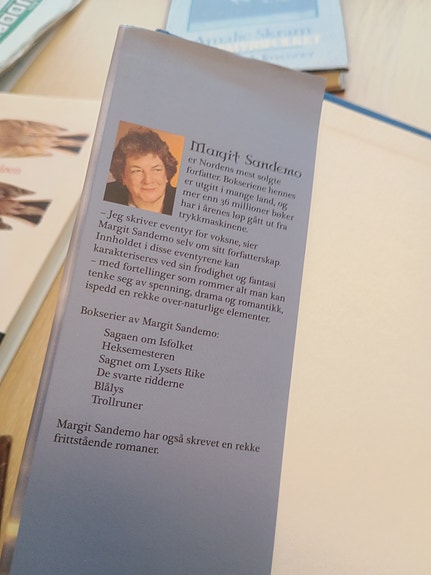 Amalie Skram
Margit Sandemo
er Nordens mest solgte
forfatter. Bokseriene hennes
er utgitt i mange land, og
mer enn 36 millioner bøker
har i årenes løp gått ut fra
trykkmaskinene.
– Jeg skriver eventyr for voksne, sier
Margit Sandemo selv om sitt forfatterskap.
Innholdet i disse eventyrene kan
karakteriseres ved sin frodighet og fantasi
– med fortellinger som rommer alt man kan
tenke seg av spenning, drama og romantikk,
ispedd en rekke over-naturlige elementer.
Bokserier av Margit Sandemo:
Sagaen om Isfolket
Heksemesteren
Sagnet om Lysets Rike
De svarte ridderne
Blålys
Trollruner
Margit Sandemo har også skrevet en rekke
frittstående romaner.